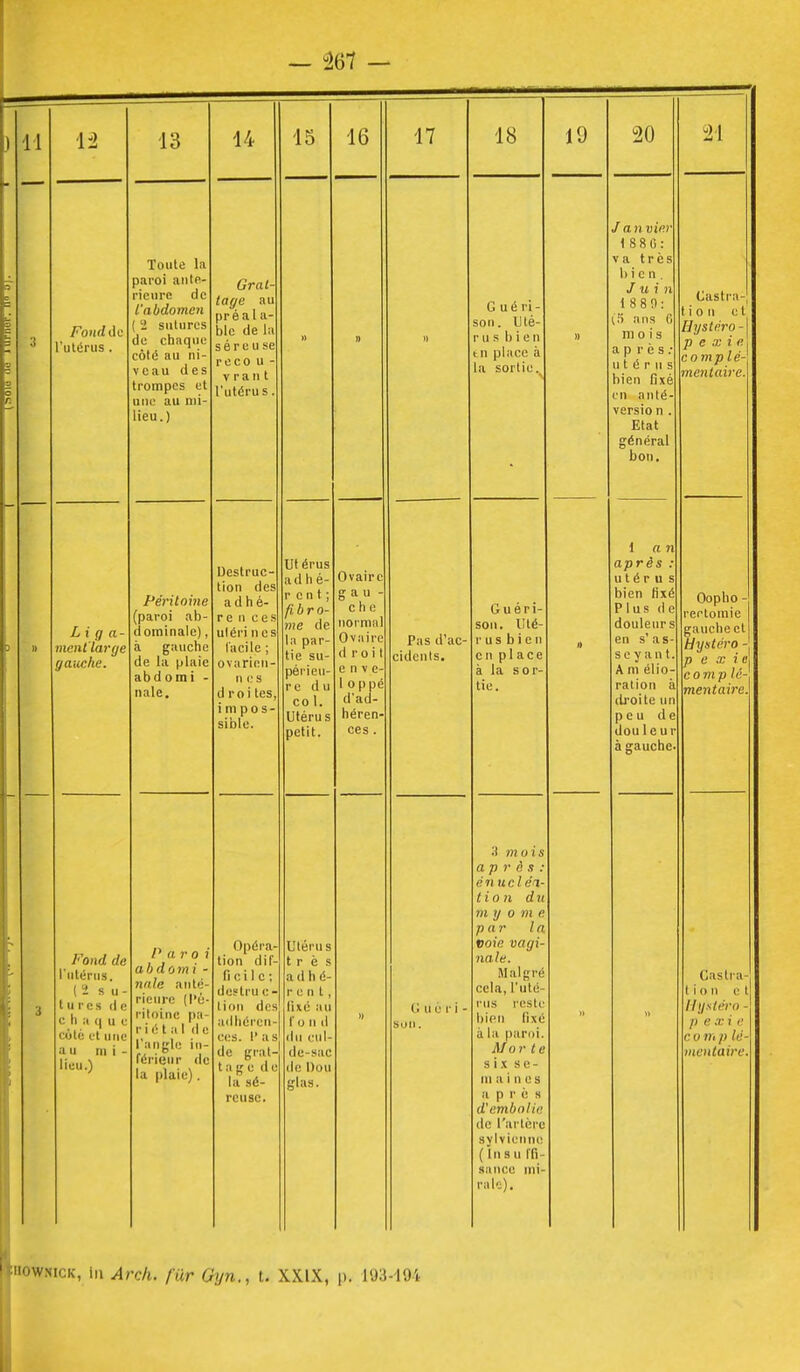 — 267 —
11
12
13
14
15
16
17
18
19
20
21
3
Fond de
l'utérus.
Toute la
paroi anté-
rieure de
l'abdomen
(2 sutures
de chaque
côté au ni-
veau des
trompes et
une au mi-
lieu.)
Grat-
tage au
préala-
ble de la
séreuse
recou-
vrant
l'utérus.
»
»
»
Guéri-
son. Uté-
rus bien
en place à
la sortie.
»
Janvier
1886:
va très
bien.
Juin
1889:
(3 ans 6
mois
après:
utérus
bien fixé
en anté-
version.
Etat
général
bon.
Castra-
tion et
Hystéro-
pexie
complé-
mentaire.
»
Liga-
ment large
gauche.
Péritoine
(paroi ab-
dominale),
à gauche
de la plaie
abdomi-
nale.
Destruc-
tion des
adhé-
rences
utérines
facile;
ovarien-
nes
droites,
impos-
sible.
Utérus
adhé-
rent;
fibro-
me de
la par-
tie su-
périeu-
re du
col.
Utérus
petit.
Ovaire
gau-
che
normal
Ovaire
droit
enve-
loppé
d'ad-
héren-
ces.
Pas d'ac-
cidents.
Guéri-
son. Uté-
rus bien
en place
à la sor-
tie.
»
1 an
après:
utérus
bien fixé
Plus de
douleurs
en s'as-
seyant.
Amélio-
ration à
droite un
peu de
douleur
à gauche.
Oopho-
rectomie
gauche et
Hystéro-
pexie
complé-
mentaire.
3
Fond de
l'utérus.
(2 su-
tures de
chaque
côté et une
au mi-
lieu.)
Paroi
abdomi-
nale anté-
rieure (Pé-
ritoine pa-
riétal de
l'angle in-
férieur de
la plaie).
Opéra-
tion dif-
ficile;
destruc-
tion des
adhéren-
ces. Pas
de grat-
tage de
la sé-
reuse.
Utérus
très
adhé-
rent,
fixé au
fond
du cul-
de-sac
de Dou
glas.
»
Guéri-
son.
3 mois
après:
énucléa-
tion du
myome
par la
voie vagi-
nale.
Malgré
cela, l'uté-
rus reste
bien fixé
à la paroi.
Morte
six se-
maines
après
d'embolie
de l'artère
sylvienne
(Insuffi-
sance mi-
rale).
»
»
Castra-
tion et
Hystéro-
pexie
complé-
mentaire.
HOWNICK, in Arch. für Gyn., t. XXIX, p. 193-194